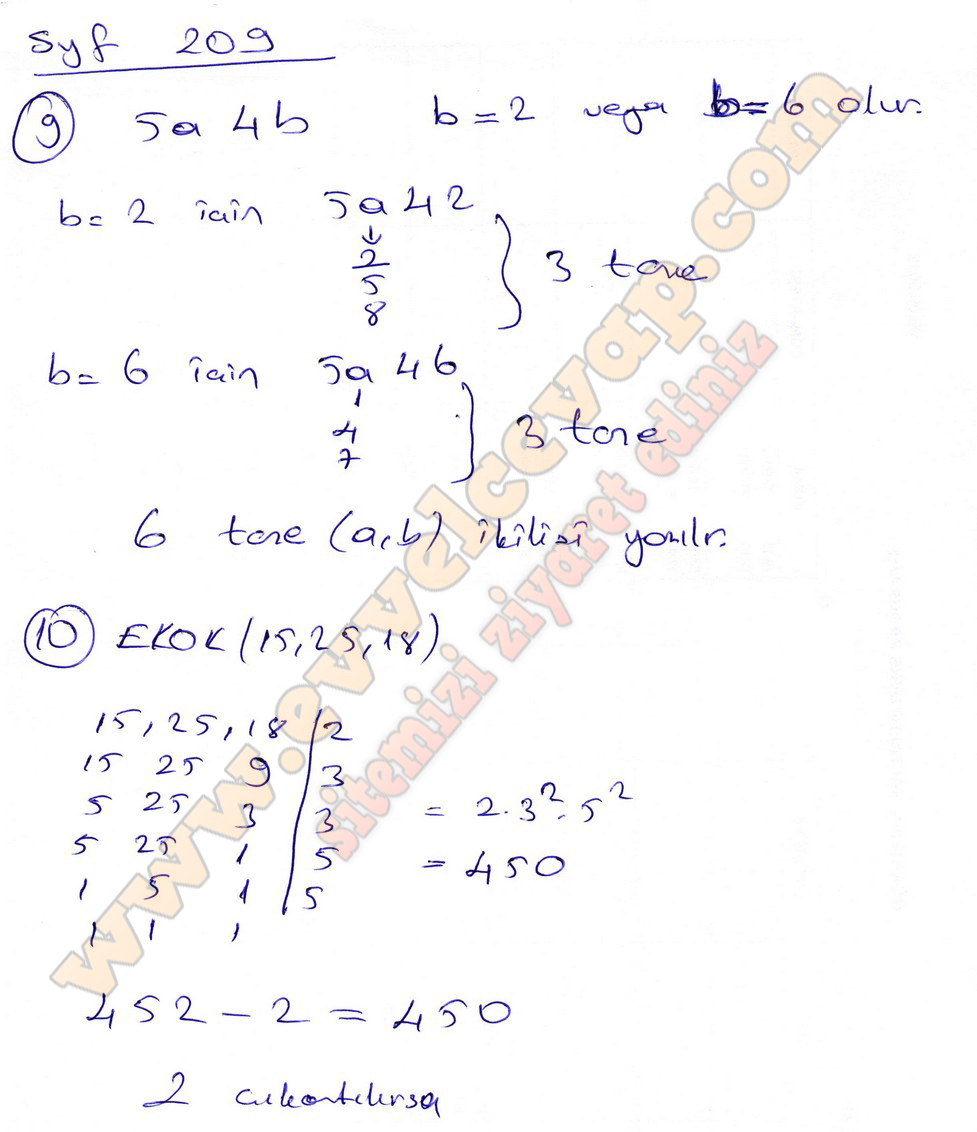 syf 209
9 5a4b b=2 veya b=6 olur.
b=2 için 5a42
2
5
8
3 tane
b=6 için 5a46
1
4
7
3 tane
6 tane (a,b) ikilisi yazılır.
10 EKOK(15,25,18)
15, 25, 18 | 2
15 25 9 | 3
5 25 3 | 3 = 2.3².5²
5 25 1 | 5 = 450
1 5 1 | 5
1 1 1
452 - 2 = 450
2 çıkartılırsa
www.evvelcevap.com
sitemizi ziyaret ediniz